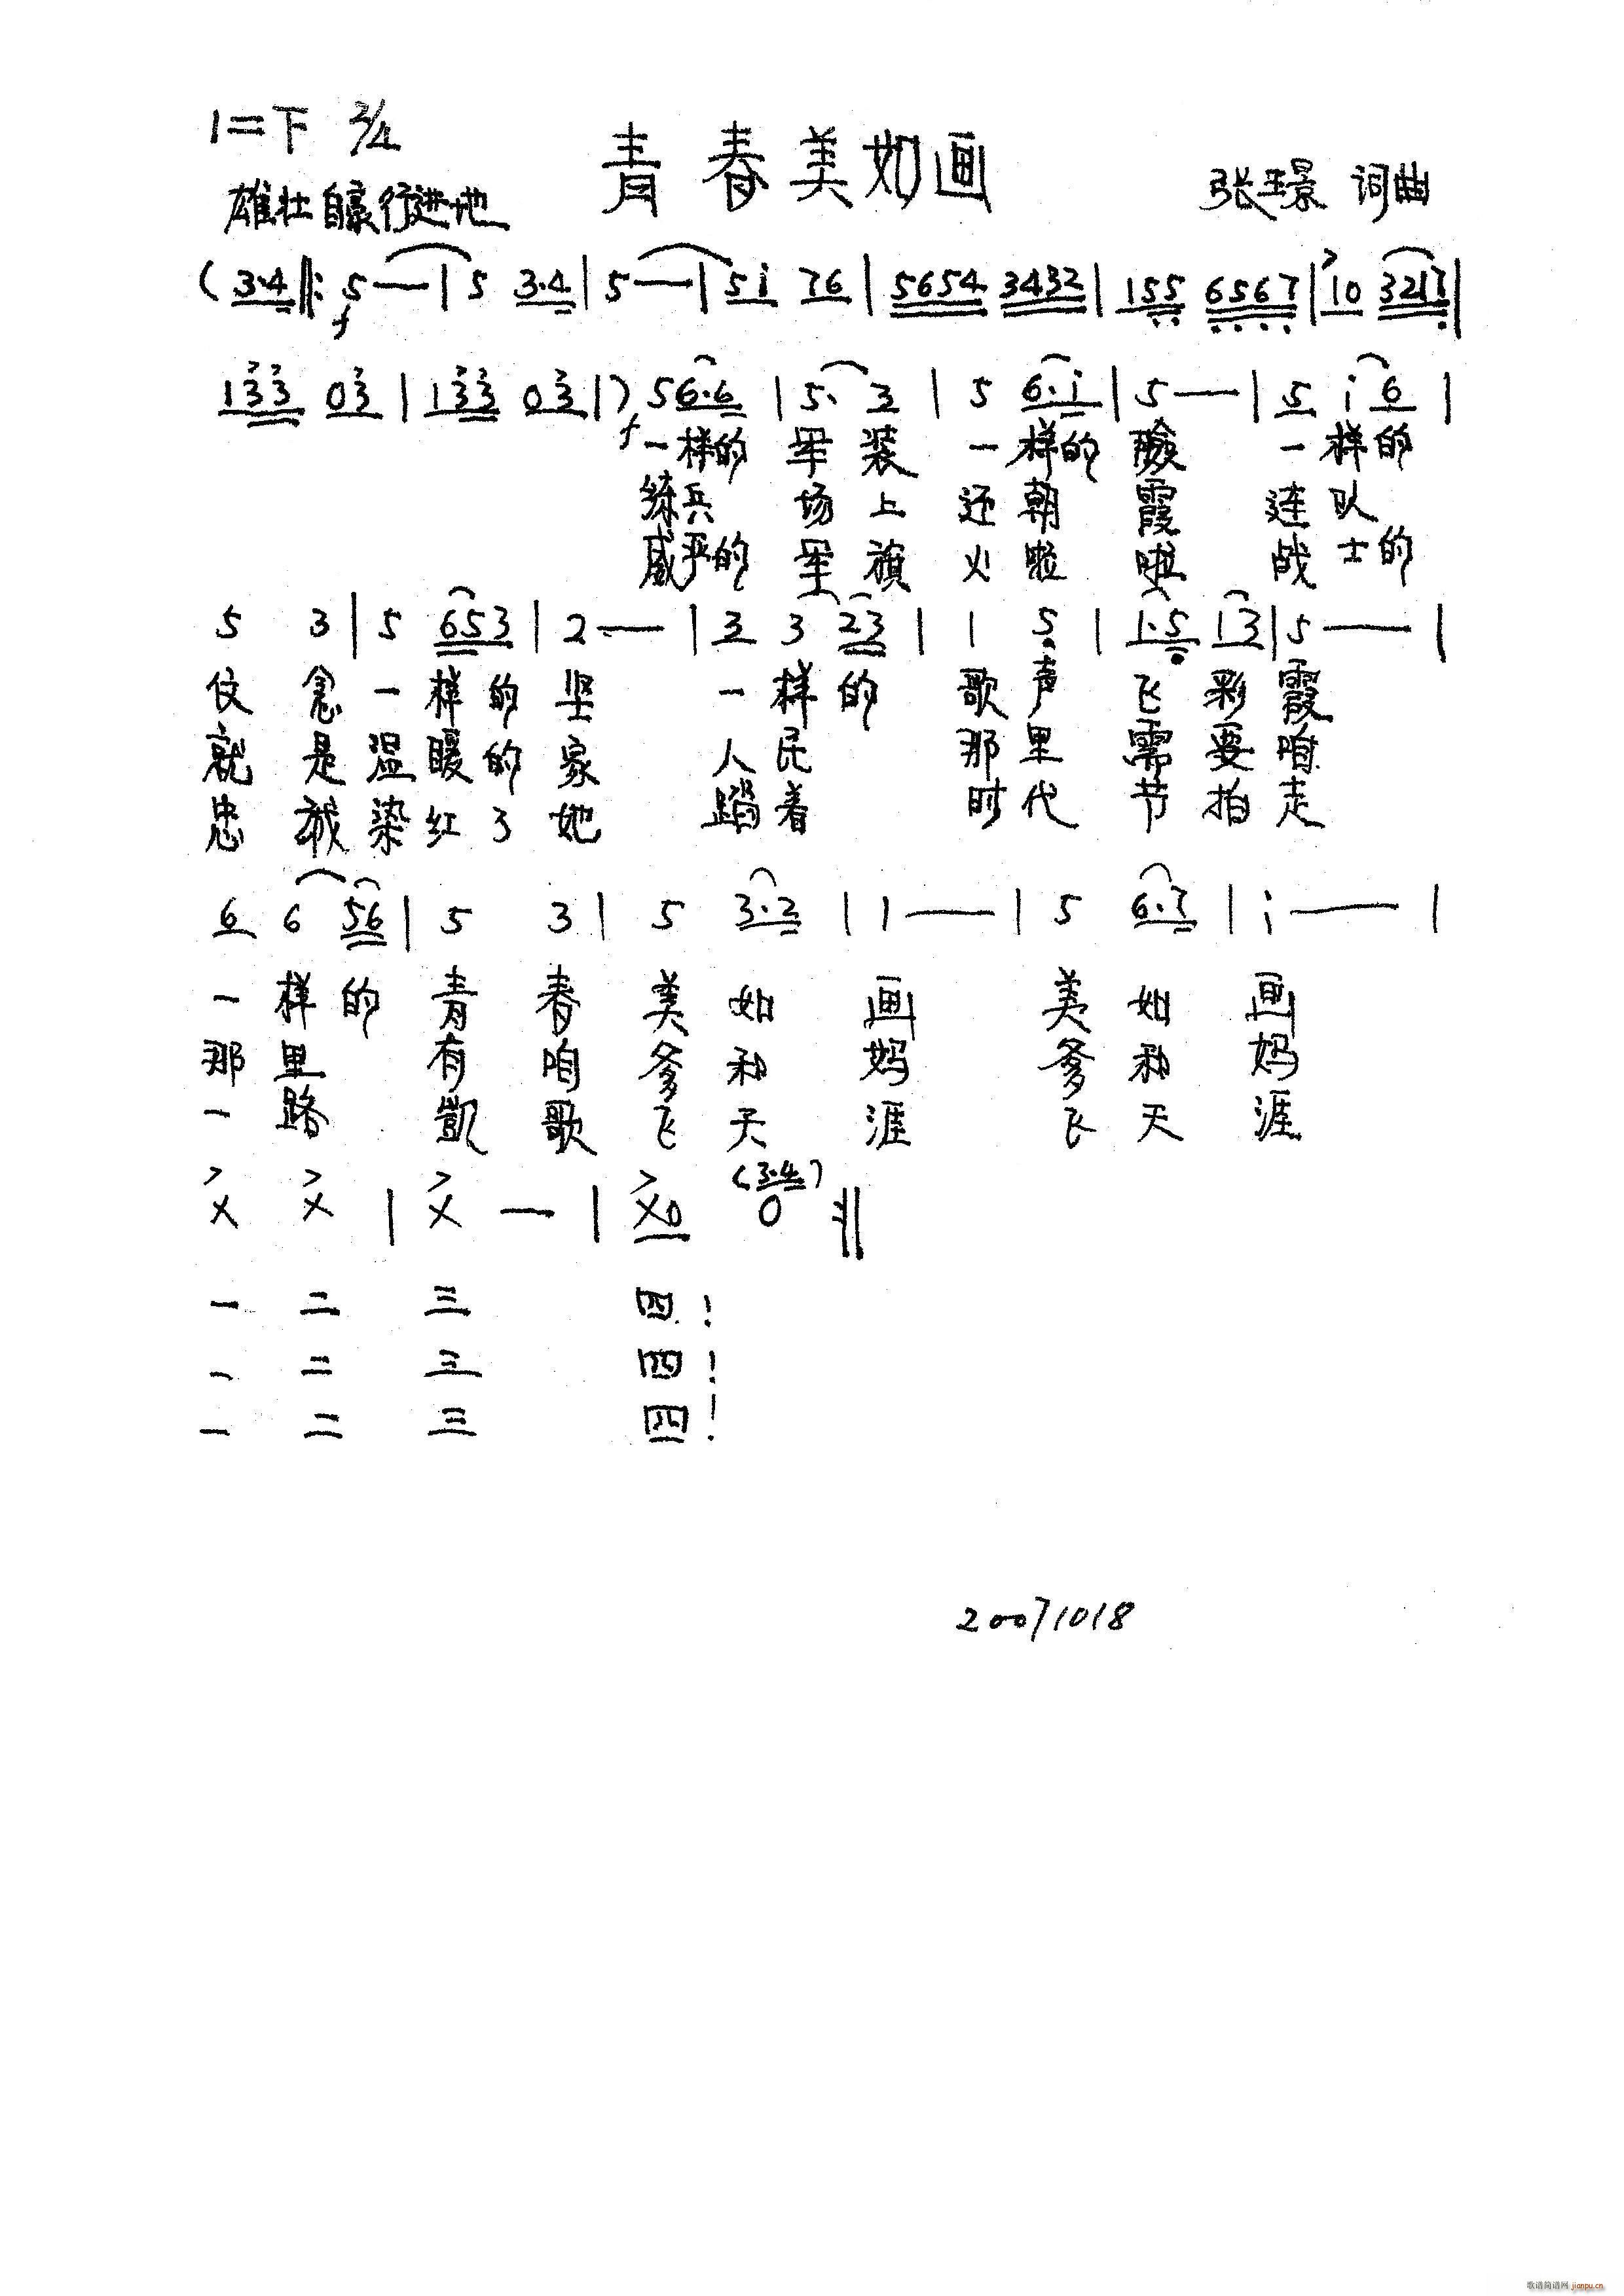 1=下 2/4
青春美如画
张璟 词曲
雄壮自豪行进地
( 3·4 ‖: 5 — | 5 3·4 | 5 — | 5 i 76 | 5654 3432 | 155 6567 | 10 3217 |
f
133 03 | 133 03 | ) 5 6·6 | 5· 3 | 5 6·i | 5 — | 5 i 6 |
f 一样的 军装 一样的 脸 一样的
练兵 场上 还朝 霞 连队
威严的 军旗 火啦 啦 战士的
5 3 | 5 653 | 2 — | 3 3 23 | 1 5 | 1·5 13 | 5 — |
信念 一样的 坚 一样的 歌声 飞彩 霞
就是 温暖的 家 人民 那里 需要 咱
忠诚 染红了 她 踏着 时代 节拍 走
6 6 56 | 5 3 | 5 3·2 | 1 — | 5 6·7 | i — |
一样的 青春 美如 画 美如 画
那里 有咱 爹和 妈 爹和 妈
一路 凯歌 飞天 涯 飞天 涯
(3·4)
X X | X — | X0 0 :‖
一 二 三 四！
一 二 三 四！
一 二 三 四！
20071018
歌谱简谱网 jianpu.cn